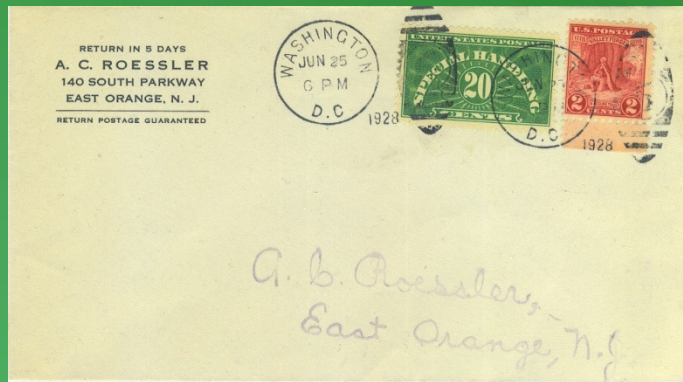 RETURN IN 5 DAYS
A. C. ROESSLER
140 SOUTH PARKWAY
EAST ORANGE, N. J.
RETURN POSTAGE GUARANTEED
WASHINGTON
JUN 25
6 PM
D.C
1928
UNITED STATES POSTAGE
SPECIAL HANDLING
20
CENTS
D.C
1928
U.S. POSTAGE
VALLEY FORGE
2 2
CENTS
A. C. Roessler,
East Orange, N.J.